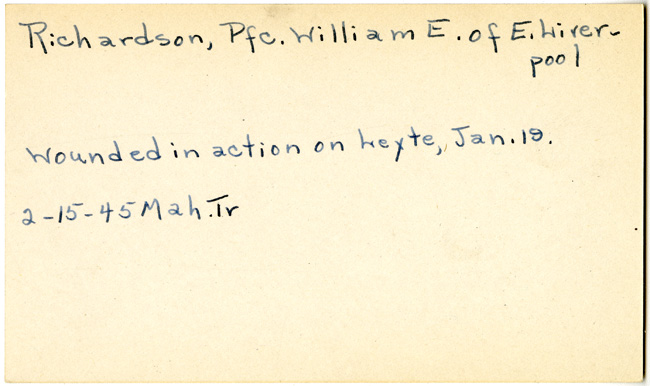 Richardson, Pfc. William E. of E. Liver-
pool
Wounded in action on Leyte, Jan. 19.
2-15-45 Mah. Tr